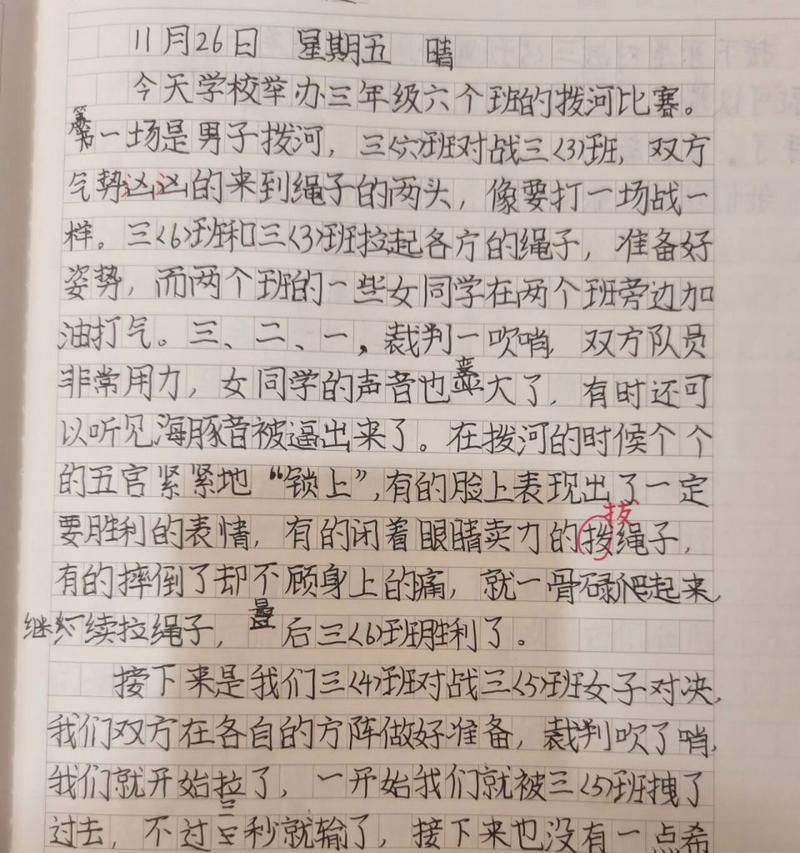 11月26日 星期五 晴
今天学校举办三年级六个班的拨河比赛。
第一场是男子拨河，三〈六〉班对战三〈3〉班，双方
气势汹汹的来到绳子的两头，像要打一场战一
样。三〈6〉班和三〈3〉班拉起各方的绳子，准备好
姿势，而两个班的一些女同学在两个班旁边加
油打气。三、二、一，裁判一吹哨，双方队员
非常用力，女同学的声音也变大了，有时还可
以听见海豚音被逼出来了。在拨河的时候个个
的五官紧紧地“锁上”，有的脸上表现出了一定
拔
要胜利的表情，有的闭着眼睛卖力的拨绳子，
有的摔倒了却不顾身上的痛，就一骨碌爬起来
继续拉绳子，最后三〈6〉班胜利了。
接下来是我们三〈4〉班对战三〈5〉班女子对决，
我们双方在各自的方阵做好准备，裁判吹了哨，
我们就开始拉了，一开始我们就被三〈5〉班拽了
过去，不过三秒就输了，接下来也没有一点希